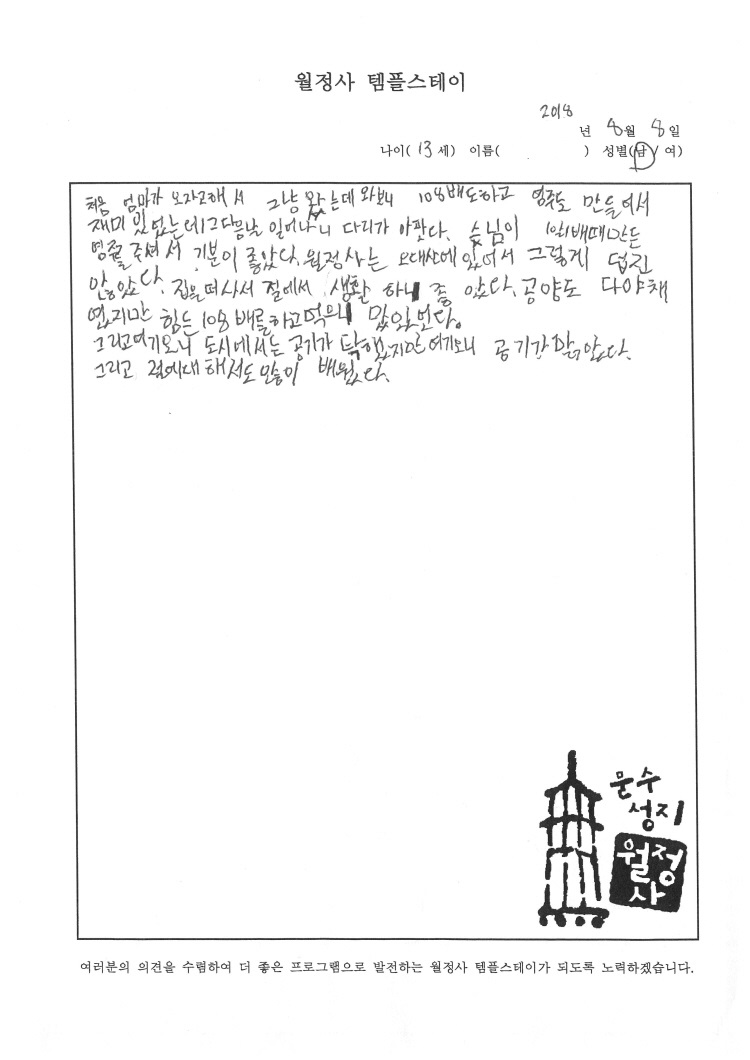 월정사 템플스테이
2018
년 8월 8일
나이( 13 세) 이름( ) 성별(남 / 여)
처음 엄마가 오자고해서 그냥 왔는데 와보니 108배도하고 염주도 만들어서
재미 있었는데 그다음날 일어나니 다리가 아팠다. 스님이 108배때 만든
염줄 주셔서 기분이 좋았다. 월정사는 오대산에 있어서 그렇게 덥진
않았다. 집을 떠나서 절에서 생활 하니 좋 았다. 공양도 다야채
였지만 힘든 108배를하고 먹으니
그리고여기오니 도시에서는 공기가 탁했지만 여기오니 공기가 맑았다.
그리고 절에대해서도 많이 배웠다.
문수
성지
월정
사
여러분의 의견을 수렴하여 더 좋은 프로그램으로 발전하는 월정사 템플스테이가 되도록 노력하겠습니다.